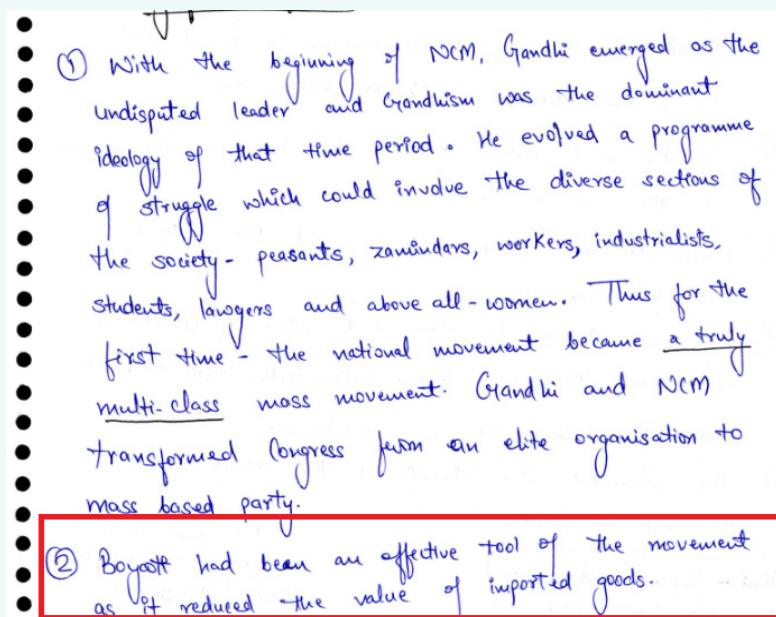 ① With the beginning of NCM, Gandhi emerged as the
undisputed leader and Gandhism was the dominant
ideology of that time period. He evolved a programme
of struggle which could involve the diverse sections of
the society - peasants, zamindars, workers, industrialists,
students, lawyers and above all - women. Thus for the
first time - the national movement became a truly
multi-class mass movement. Gandhi and NCM
transformed Congress from an elite organisation to
mass based party.
② Boycott had been an effective tool of the movement
as it reduced the value of imported goods.